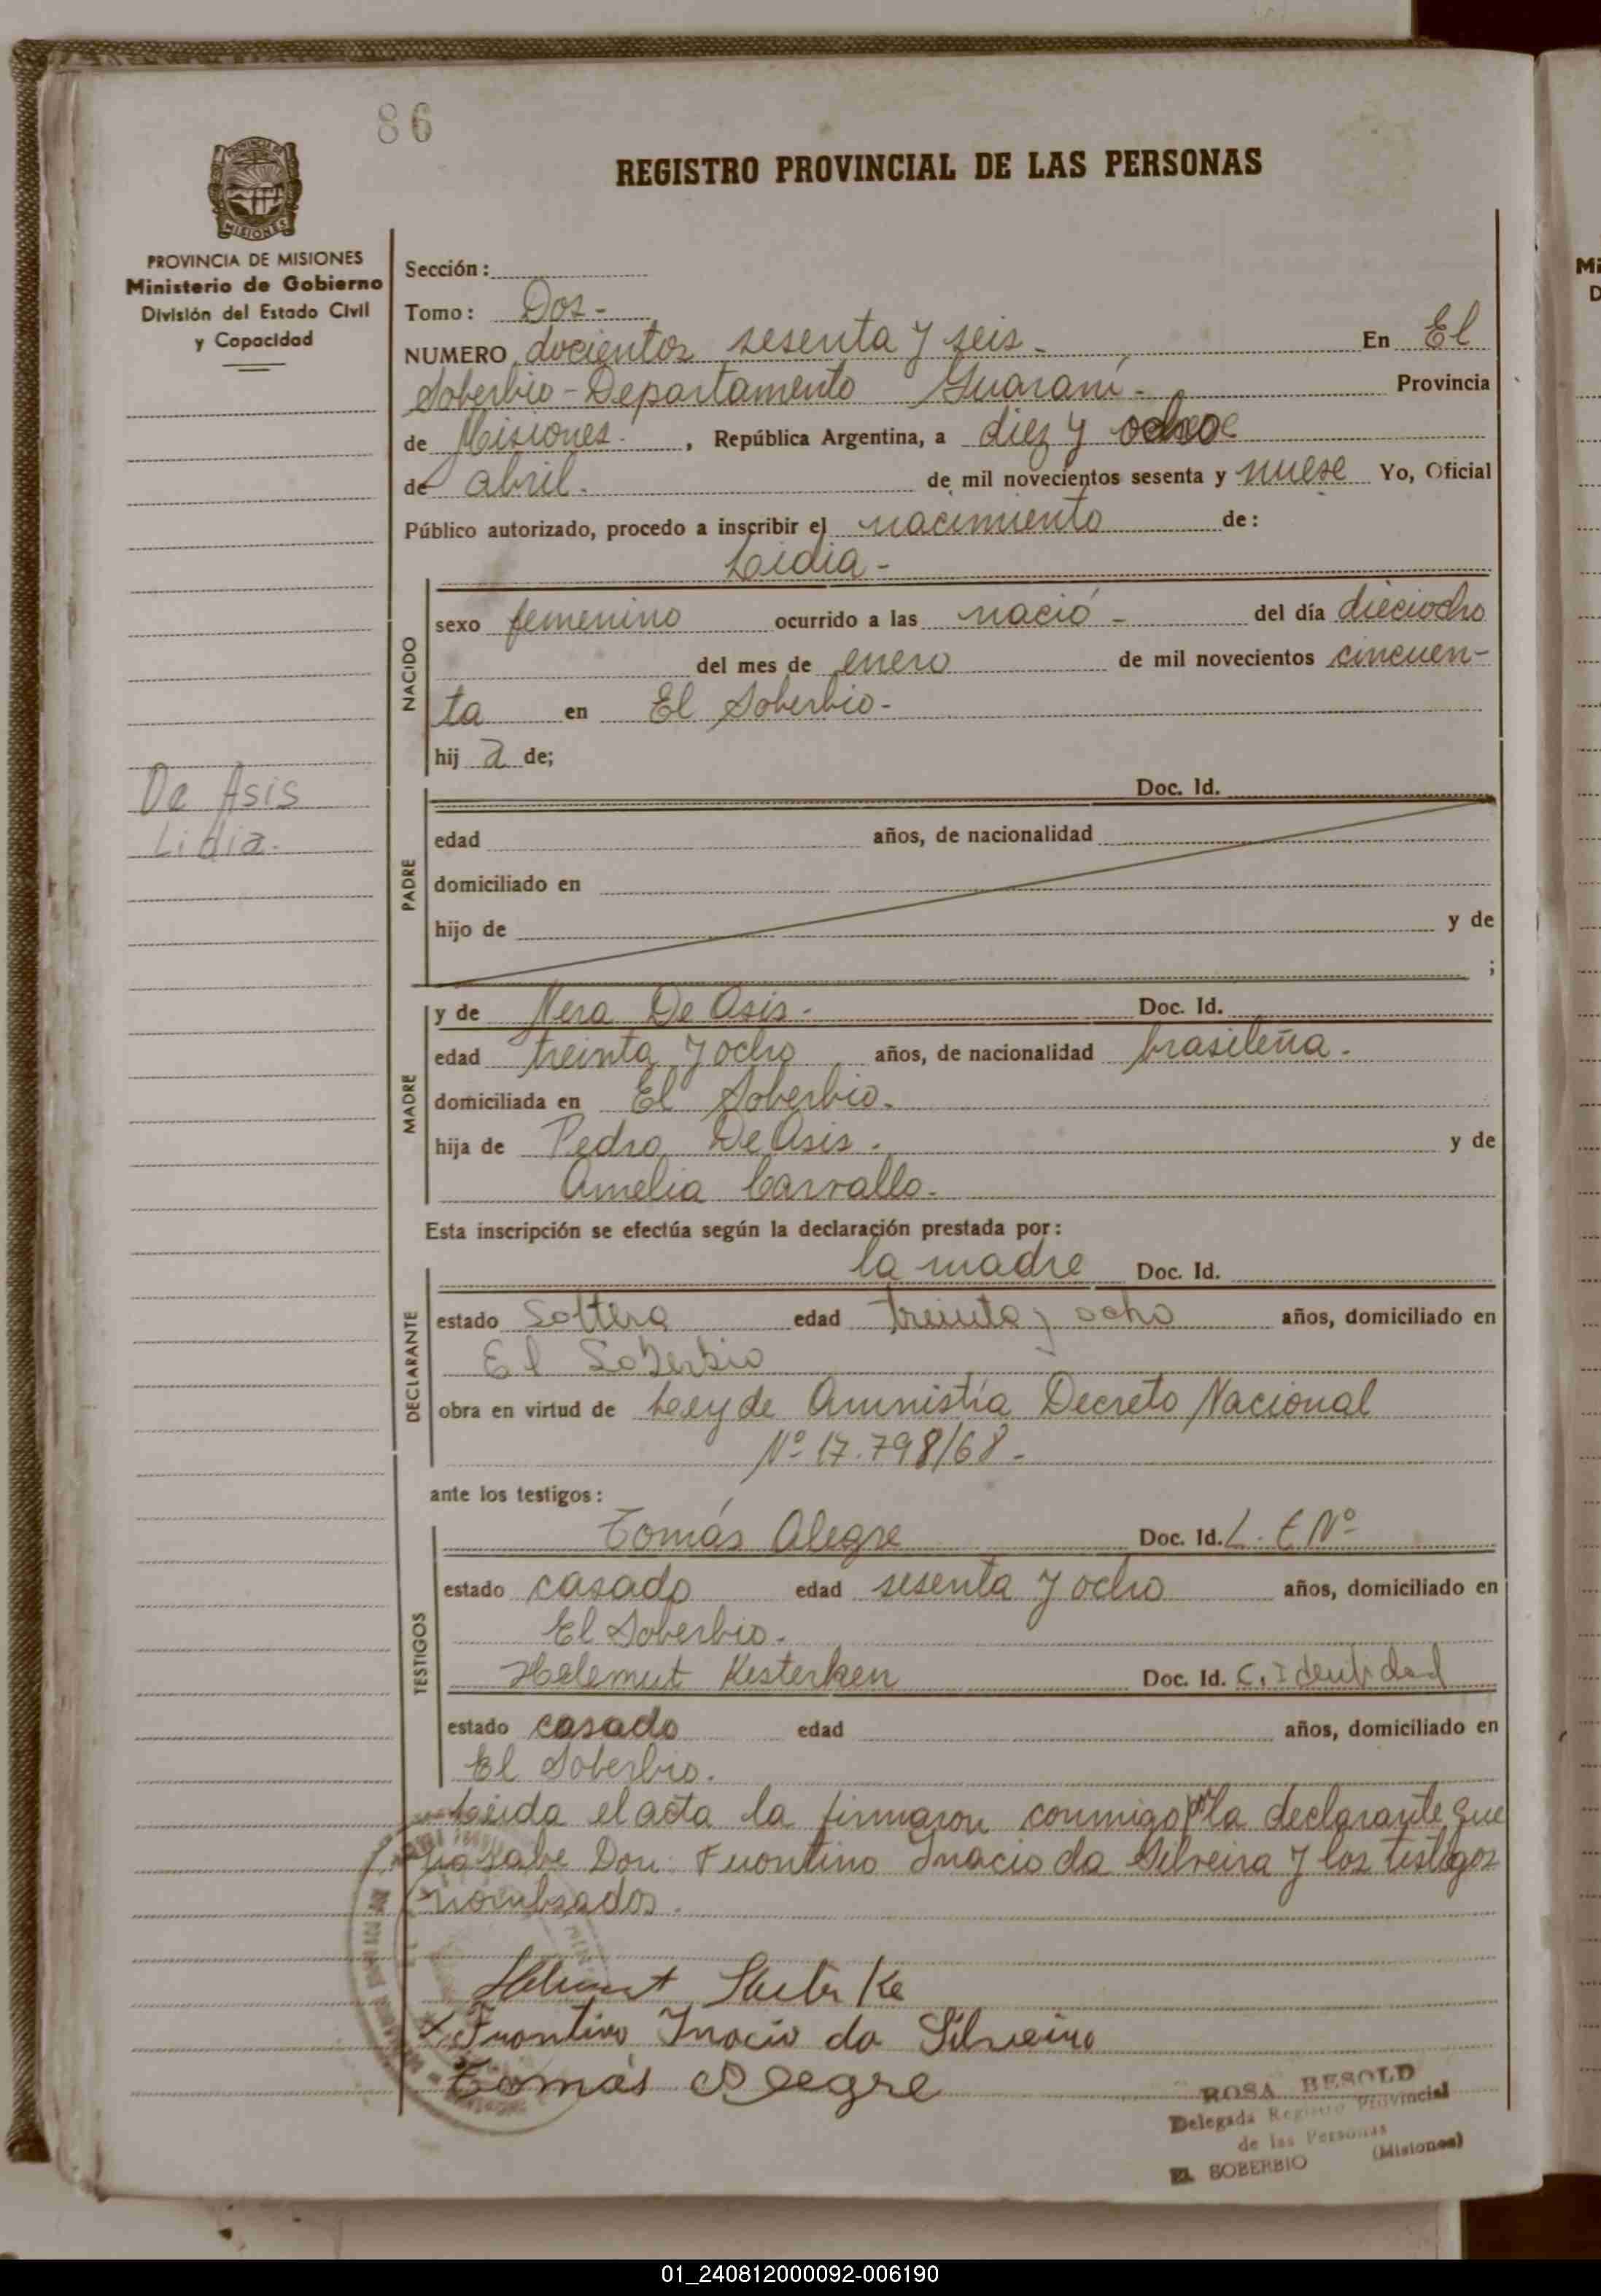 86
REGISTRO PROVINCIAL DE LAS PERSONAS
MISIONES
PROVINCIA DE MISIONES
Ministerio de Gobierno
División del Estado Civil
y Capacidad
Sección:
Tomo: Dos -
NUMERO docientos sesenta y seis - En El
Soberbio - Departamento Guaraní - Provincia
de Misiones - , República Argentina, a diez y
de abril. de mil novecientos sesenta y nuese Yo, Oficial
Público autorizado, procedo a inscribir el nacimiento de:
Lidia -
NACIDO
sexo femenino ocurrido a las nació - del día dieciocho
del mes de enero de mil novecientos cincuen-
ta en El Soberbio -
hij a de;
De Asis
Lidia.
PADRE
Doc. Id.
edad años, de nacionalidad
domiciliado en
hijo de y de
;
MADRE
y de Nera De Asis - Doc. Id.
edad treinta y ocho años, de nacionalidad brasileña -
domiciliada en El Soberbio.
hija de Pedro De Asis - y de
Amelia Carvallo.
Esta inscripción se efectúa según la declaración prestada por:
DECLARANTE
la madre Doc. Id.
estado Soltera edad treinta y ocho años, domiciliado en
El Soberbio
obra en virtud de Ley de Amnistía Decreto Nacional
Nº 17.798/68 -
ante los testigos:
TESTIGOS
Tomás Alegre Doc. Id. L. E Nº
estado casado edad sesenta y ocho años, domiciliado en
El Soberbio.
Helemut Kesterken Doc. Id. C. Identidad
estado casado edad años, domiciliado en
El Soberbio.
Leída el acta la firmaron conmigo por la declarante que
no sabe Don Fuontino Inacio da Silveira y los testigos
nombrados.
Helmut
Fuontino Inacio da Silveira
Tomás Alegre
ROSA BESOLD
Delegada Registro Provincial
de las Personas
EL SOBERBIO (Misiones)
01_240812000092-006190